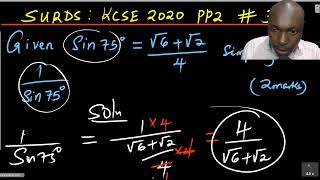 SURDS: KCSE 2020 PP2 #
Given Sin75° = √6+√2 / 4
1 / Sin75°
(2marks)
Soln
1 / Sin75° = 1 ×4 / √6+√2 / 4 ×4 = 4 / √6+√2